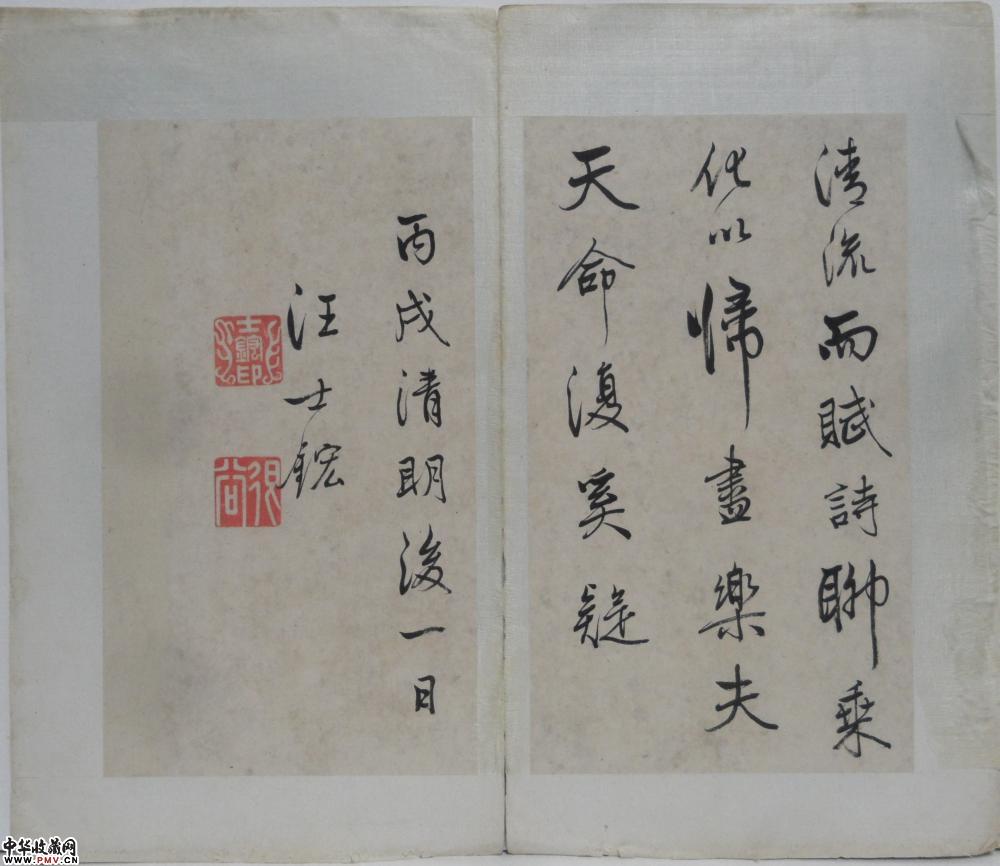 清流而賦詩聊乘
化以歸盡樂夫
天命復奚疑
丙戌清明後一日
汪士鋐
士鋐印
中华收藏网
www.PMV.CN